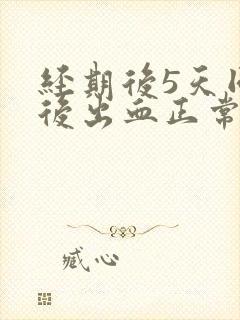 經期後5天
後出血正常
臧心